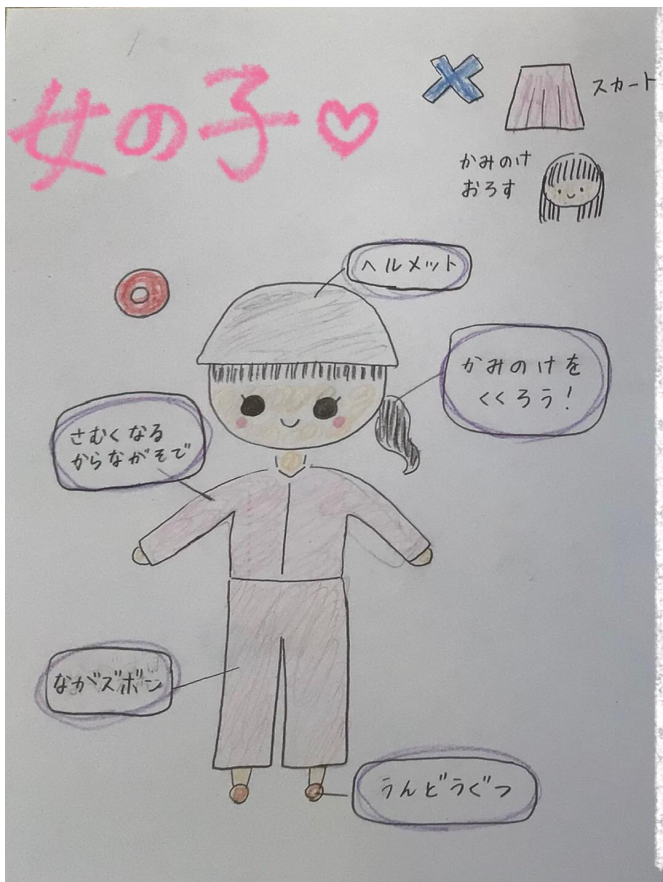 女の子♡
スカート
かみのけ
おろす
ヘルメット
かみのけを
くくろう!
さむくなる
からながそで
ながズボン
うんどうぐつ